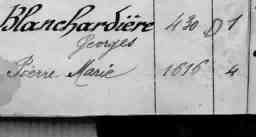 Blanchardière 430 D 1
Georges
Pierre Marie 1616 4